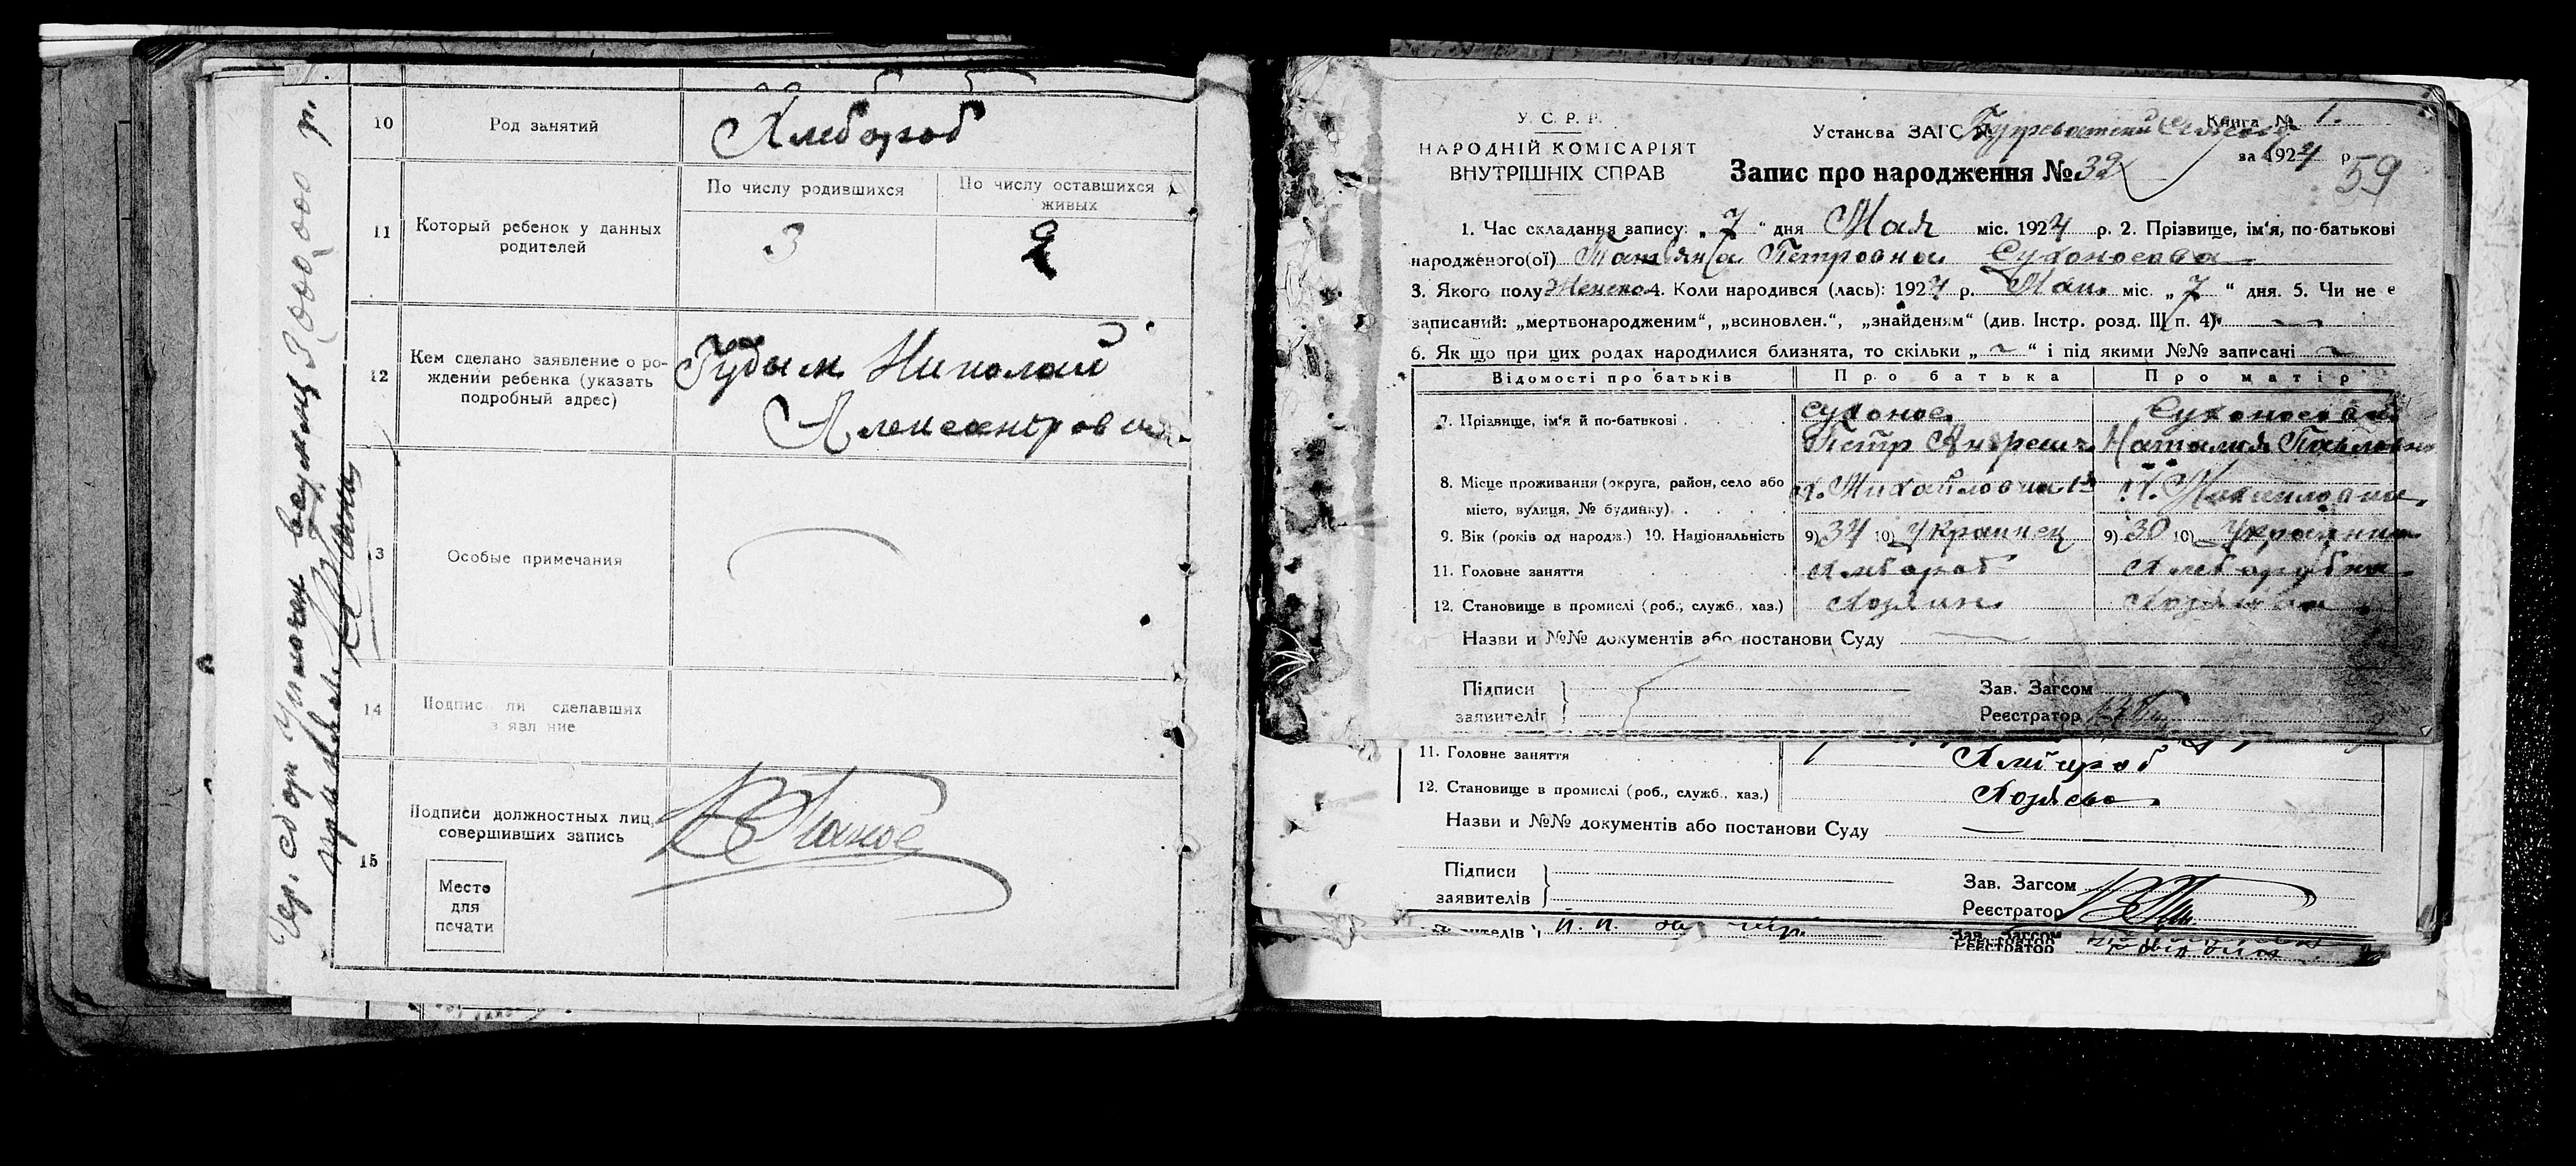 10 Род занятий Хлебороб
11 Который ребенок у данных родителей
По числу родившихся По числу оставшихся живых
3 2
12 Кем сделано заявление о ро-
ждении ребенка (указать
подробный адрес)
Гудым Николай
Александрович
13 Особые примечания
14 Подписи сделавших
15 Подписи должностных лиц,
совершивших запись
Место
для
печати
3000000 р.
У. С. Р. Р.
НАРОДНІЙ КОМІСАРІЯТ
ВНУТРІШНІХ СПРАВ
Установа ЗАГС
Книга № 1.
за 1924 р.
59
Запис про народження № 32
1. Час складання запису: „7“ дня Мая міс. 1924 р. 2. Прізвище, ім'я, по-батькові
народженого(ої) Татьяна Петровна Сухоносова
3. Якого полу Женско 4. Коли народився (лась): 1924 р. Мая міс. „7“ дня. 5. Чи не є
записаний: „мертвонародженим“, „всиновлен.“, „знайденям“ (див. Інстр. розд. III п. 4)
6. Як що при цих родах народилися близнята, то скільки „ “ і під якими №№ записані
Відомості про батьків Про батька Про матір
7. Прізвище, ім'я й по-батькові
Сухонос Сухоносова
Петр Андреич Наталия Павловна
8. Місце проживання (округа, район, село або
місто, вулиця, № будинку)
х. Михайловка х. Михайловка
9. Вік (років од народж.) 10. Національність 9) 34 10) Украинец 9) 30 10) Украинка
11. Головне заняття Хлебороб Хлеборубка
12. Становище в промислі (роб., служб., хаз.) Хозяин Хозяйка
Назви и №№ документів або постанови Суду
Підписи
заявителів
Зав. Загсом
Реєстратор
11. Головне заняття Хлебороб
12. Становище в промислі (роб., служб., хаз.)
Назви и №№ документів або постанови Суду
Підписи
заявителів
Зав. Загсом
Реєстратор
Зав. Загсом
Реєстратор